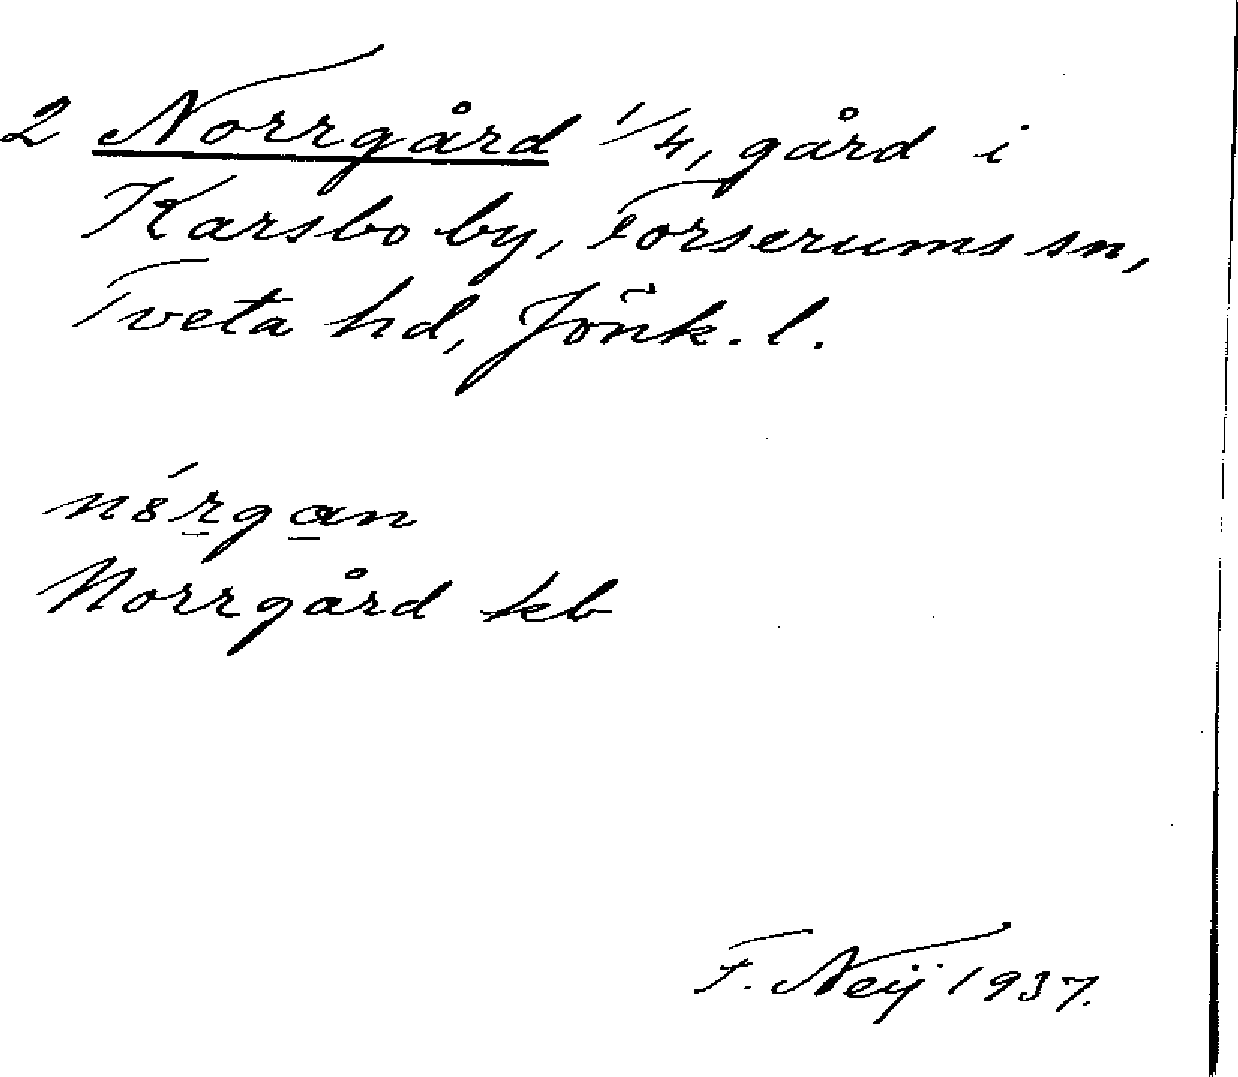 2 Norrgård 1/4, gård i
Karsbo by, Forserums sn,
Tveta hd, Jönk. l.
Norrgård kb
F. Neij 1937.